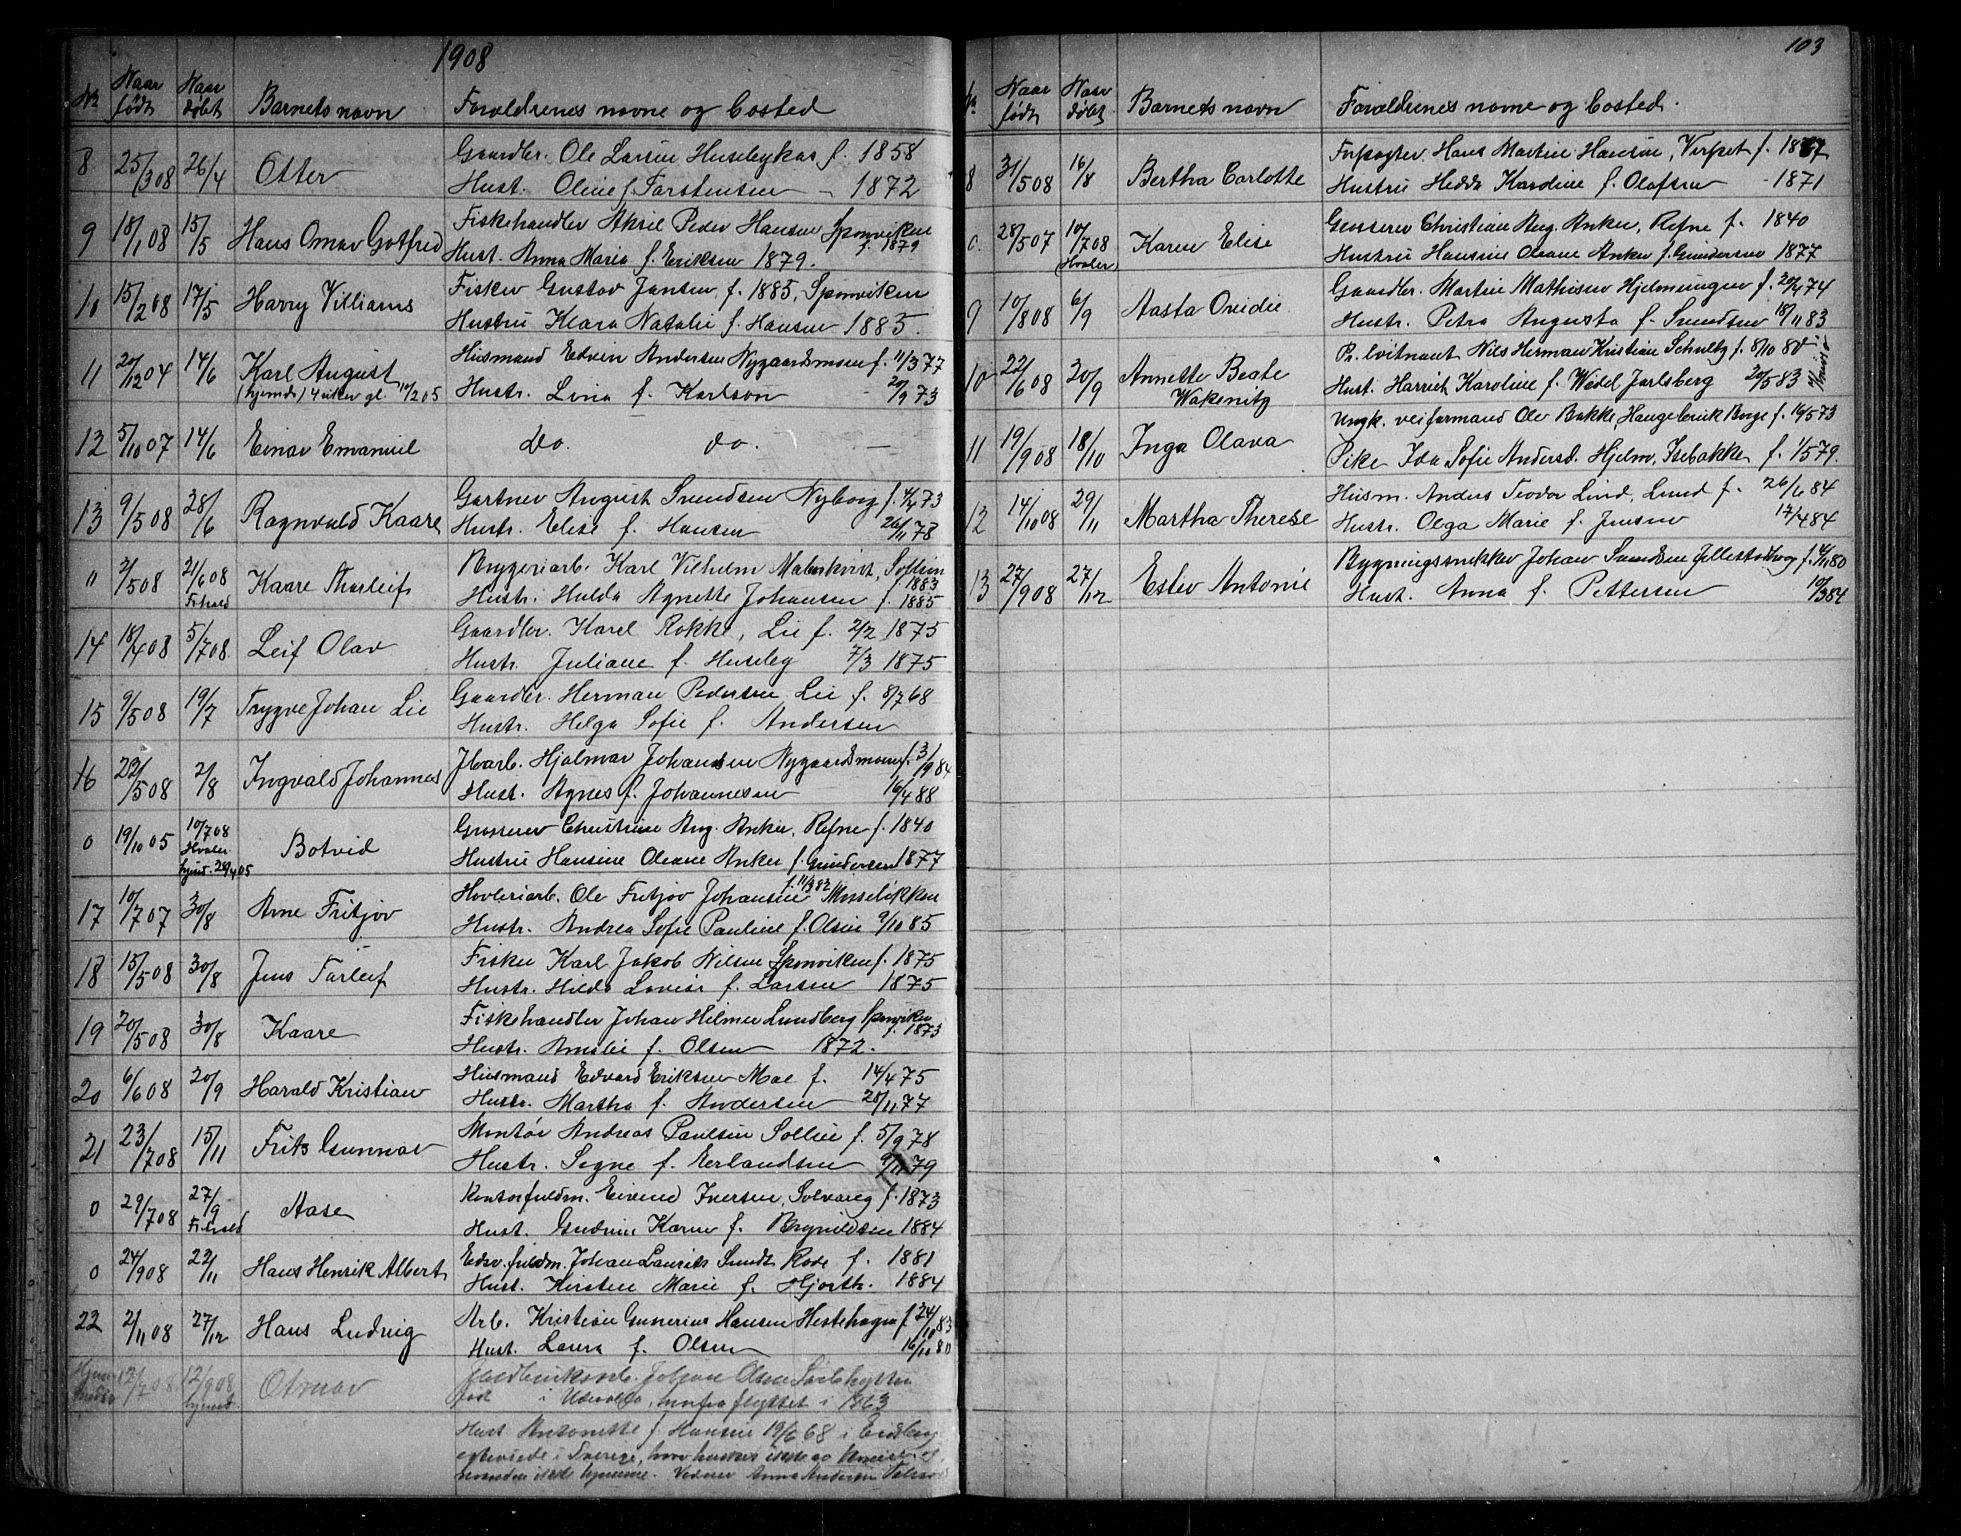 1908
No Naar født Naar døbt Barnets navn Forældrenes navne og bosted
8 25/3 08 26/4 Otter Gaardbr. Ole Larsen Husebykas f. 1858
Hust. Oline f. Torstensen - 1872
9 18/1 08 15/5 Hans Omar Gotfred Fiskehandler Aksel Peder Hansen Sponviken f. 1879
Hust. Anna Maria f. Eriksen 1879.
10 15/2 08 17/5 Harry Villiams Fisker Gustav Jansen f. 1885, Sponviken
Hustru Klara Natalie f. Hansen 1885.
11 20/12 04 14/6 Karl August Husmand Edvin Andersen Nygaardsmoen f. 11/3 77
(hjemdr) 4 uker gl. 10/2 05 Hustr. Lina f. Karlson - 20/9 73
12 5/10 07 14/6 Einar Emanuel do. do. —
13 9/5 08 28/6 Ragnvald Kaare Gartner August Svendsen Nyborg f. 4/4 73
Hustr. Elise f. Hansen 26/11 78
0 2/5 08 21/6 08 Fr.hald Kaare Tharleif Bryggeriarb. Karl Vilhelm Malmkvist, Sollien f. 1883
Hustr. Hulda Agnette Johansen f. 1885
14 18/4 08 5/7 08 Leif Olav Gaardbr. Karel Rokke, Lie f. 2/2 1875
Hustr. Juliane f. Huseby 7/3 1875
15 9/5 08 19/7 Trygve Johan Lie Gaardbr. Herman Pedersen Lie f. 8/7 68
Hustr. Helga Sofie f. Andersen
16 22/5 08 2/8 Ingvald Johannes Jbarb. Hjalmar Johansen Nygaardsmoen f. 3/9 84
Hust. Agnes f. Johannesen 16/4 88
0 19/10 05 10/7 08 Hvaler Botvid Grosserer Christian Aug. Anker, Refne f. 1840
hjemd. 28/4 05 Hustru Hansine Oleane Anker f. Gundersen 1877
17 10/7 07 30/8 Arne Fritjov Høvleriarb. Ole Fritjov Johansen f. 11/3 82 Musseløkken
Hustr. Andrea Sofie Pauline f. Olsen 9/10 85
18 15/5 08 30/8 Jens Torleif Fisker Karl Jakob Nilsen Sponviken f. 1875
Hustr. Hilda Lovise f. Larsen 1875
19 20/5 08 30/8 Kaare Fiskehandler Johan Hilmer Lundberg Sponviken f. 1873
Hustr. Amalie f. Olsen 1872.
20 6/6 08 20/9 Harald Kristian Husmand Edvard Eriksen Moe f. 14/4 75
Hustr. Martha f. Andersen 20/11 77
21 23/7 08 15/11 Frits Gunnar Montør Andreas Paulsen Sollie f. 5/9 78
Hustr. Signe f. Erlandsen 9/11 79
0 29/7 08 27/9 Fr.hald Aase Kontorfuldm. Eivind Iversen, Solvang f. 1873
Hust. Gudrun Karen f. Brynildsen 1884
0 24/9 08 22/11 Hans Henrik Albert Edsv. fuldm. Johan Laurits Sundt Rode f. 1881
Hust. Kirsten Marie f. Hjorth. 1884
22 2/11 08 27/12 Hans Ludvig Arb. Kristian Gunerius Hansen Hestehagen f. 24/10 83
Hust. Laura f. Olsen 16/10 80
Hjemmedøbt 12/7 08 12/9 08 hjemd. Otmar Johan Olsen
født i Udevalla, herfra flyttet i 1863
Hust. Antonette f. Hansen 19/6 68 i
i Sverige, hvor
Anna Andersen
103
No Naar født Naar døbt Barnets navn Forældrenes navne og bosted.
8 31/5 08 16/8 Bertha Carlotte Forpagter Hans Martin Hansen, Verpet f. 1867
Hustru Hedda Karoline f. Olafsen - 1871
0. 28/5 07 10/7 08 (Hvaler) Karen Elise Grosserer Christian Aug. Anker, Refne f. 1840
Hustru Hansine Oleane Anker f. Gundersen 1877
9 10/8 08 6/9 Aasta Ovidie Gaardbr. Martin Mathisen Hjelmungen f. 20/4 74
Hustr. Petra Augusta f. Svendsen 18/11 83
10 22/6 08 20/9 Annette Beate Wakenitz Pr. løitnant Nils Herman Kristian Schultz f. 8/10 80
Hust. Harriet Karoline f. Wedel Jarlsberg 20/5 83
11 19/9 08 18/10 Inga Olava Ungk. veiformand Ole Bakke Haugebrek Borge f. 16/5 73
Pike Ida Sofie Andersd. Hjelm, Isebakke f. 1/5 79.
12 14/10 08 29/11 Martha Therese Husm. Anders Teodor Lund, Lund f. 26/6 84
Hustr. Olga Marie f. Jensen 17/4 84
13 27/9 08 27/12 Ester Antonie Bygningssnekker Johan Svendsen Jellestadhaug f. 4/11 80
Hust. Anna f. Pettersen 10/3 84